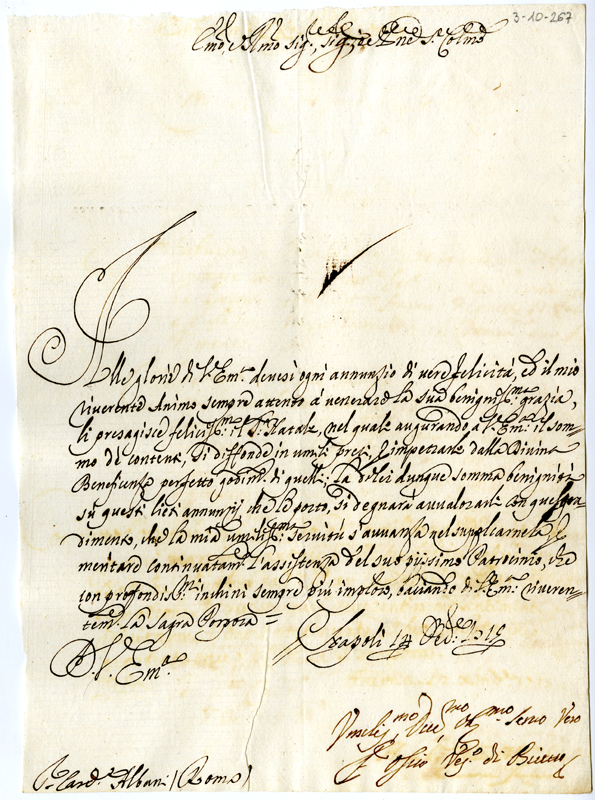 3-10-267
Em̃o e R̃mo Sig.re Sig.re e P̃ne Colmo
Alle glorie di V. Em.a devesi ogni annunzio di vere felicità, ed il mio
riverente Animo sempre attento à venerare la sua benignis.ma grazia,
li presagisce felicis.mo il S. Natale, nel quale augurando a V. Em.a il som-
mo de contenti, si diffonde in umili preci, p impetrarle dalla Divina
Beneficenza perfetto godim.to di quelli; La di lei dunque somma benignità
su questi lieti annunzij che le porto, si degnarà avvalorarli con quel gra-
dimento, che la mia umilis.ma servitù s'avvanza nel supplicarnela p
mentare continuatam.te l'assistenza del suo pijssimo Patrocinio, che
con profondis.mi inchini sempre più imploro, baciando di V. Em.a riveren-
tem.te la Sagra Porpora =
D. V. Em.a
Napoli 14 Xbre 1715
Umilis.mo Dev.mo Obl.mo Servo Vero
Vesc.o di
S. Card.e Albani (Roma)